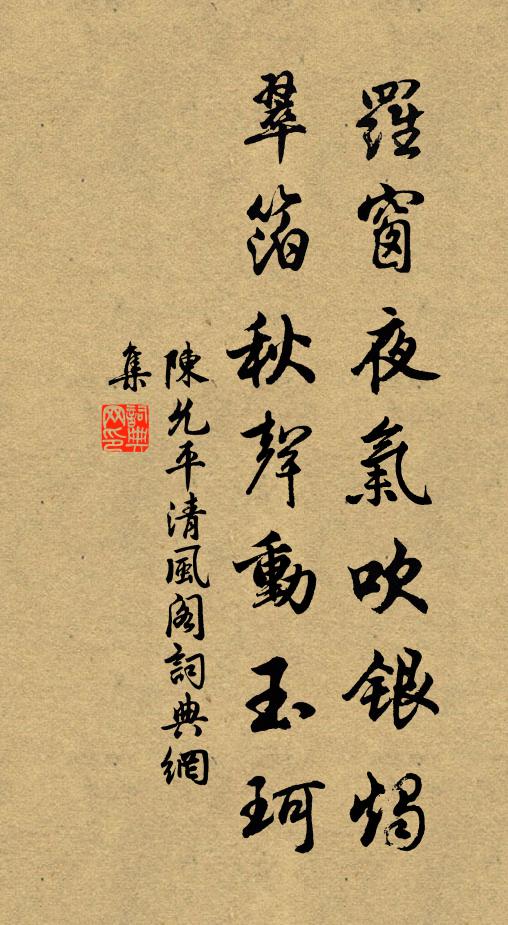 羅窗夜氣吹銀燭
翠箔秋聲動玉珂
陳允平清風閣詞典網
集
詞典網印